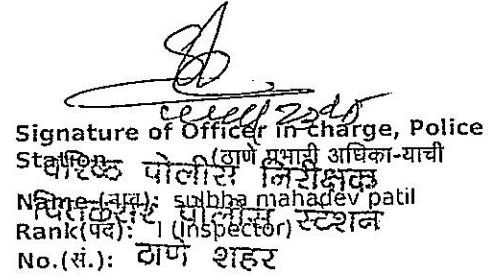 Signature of Officer in charge, Police
Station (ठाणे प्रभारी अधिका-याची
वरिष्ठ पोलीस निरीक्षक
Name (नाव): sulbha mahadev patil
पोलीस स्टेशन
Rank(पद): I (Inspector)
No.(सं.): ठाणे शहर